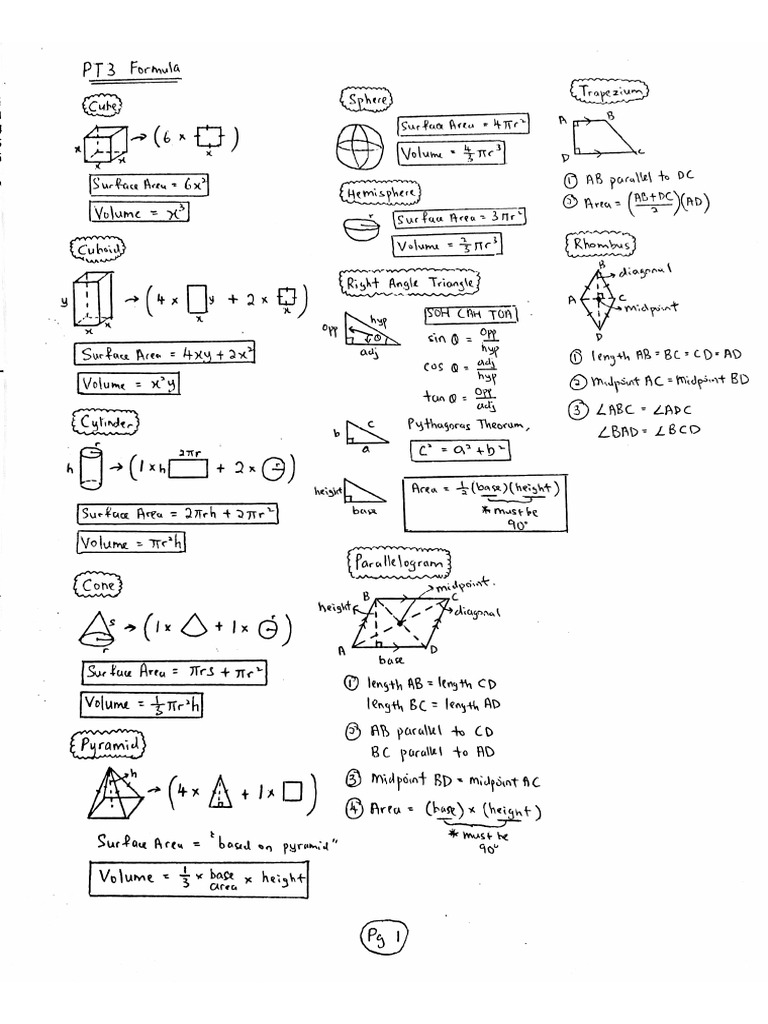 PT3 Formula
Cube
x x x → (6 × x)
Surface Area = 6x²
Volume = x³
Cuboid
y x x → (4 × y x + 2 × x)
Surface Area = 4xy + 2x²
Volume = x²y
Cylinder
r h → (1 × h 2πr + 2 × r)
Surface Area = 2πrh + 2πr²
Volume = πr²h
Cone
s r → (1 × + 1 × r)
Surface Area = πrs + πr²
Volume = 1/3 πr²h
Pyramid
h → (4 × + 1 × )
Surface Area = "based on pyramid"
Volume = 1/3 × base area × height
Sphere
Surface Area = 4πr²
Volume = 4/3 πr³
Hemisphere
r
Surface Area = 3πr²
Volume = 2/3 πr³
Right Angle Triangle
SOH CAH TOA
opp hyp θ adj
sin θ = opp/hyp
cos θ = adj/hyp
tan θ = opp/adj
b c a
Pythagoras Theorum,
c² = a² + b²
height base
Area = 1/2 (base)(height)
* must be
90°
Parallelogram
midpoint.
height B C
diagonal
A D
base
① length AB = length CD
length BC = length AD
② AB parallel to CD
BC parallel to AD
③ Midpoint BD = midpoint AC
④ Area = (base) × (height)
* must be
90°
Trapezium
A B
D C
① AB parallel to DC
② Area = (AB+DC/2)(AD)
Rhombus
B diagonal
A C
midpoint
D
① length AB = BC = CD = AD
② Midpoint AC = Midpoint BD
③ ∠ABC = ∠ADC
∠BAD = ∠BCD
Pg 1